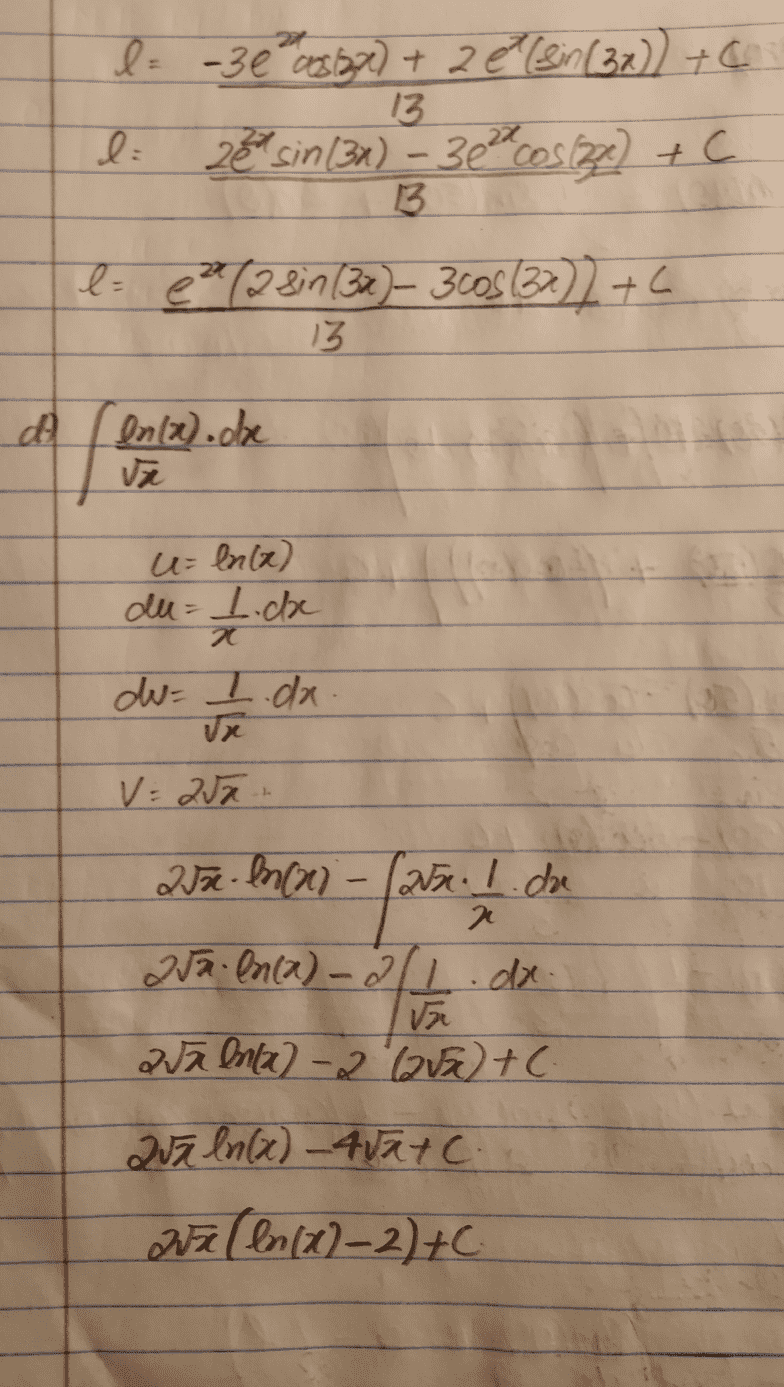 l = -3e^2x cos(3x) + 2e^x(sin(3x)) + C
13
l = 2e^2x sin(3x) - 3e^2x cos(3x) + C
13
l = e^2x (2sin(3x) - 3cos(3x)) + C
13
d) ∫ ln(x) . dx
√x
u = ln(x)
du = 1/x . dx
dv = 1/√x . dx
V = 2√x
2√x . ln(x) - ∫ 2√x . 1/x . dx
2√x . ln(x) - 2∫ 1/√x . dx
2√x ln(x) - 2 (2√x) + C
2√x ln(x) - 4√x + C
2√x (ln(x) - 2) + C